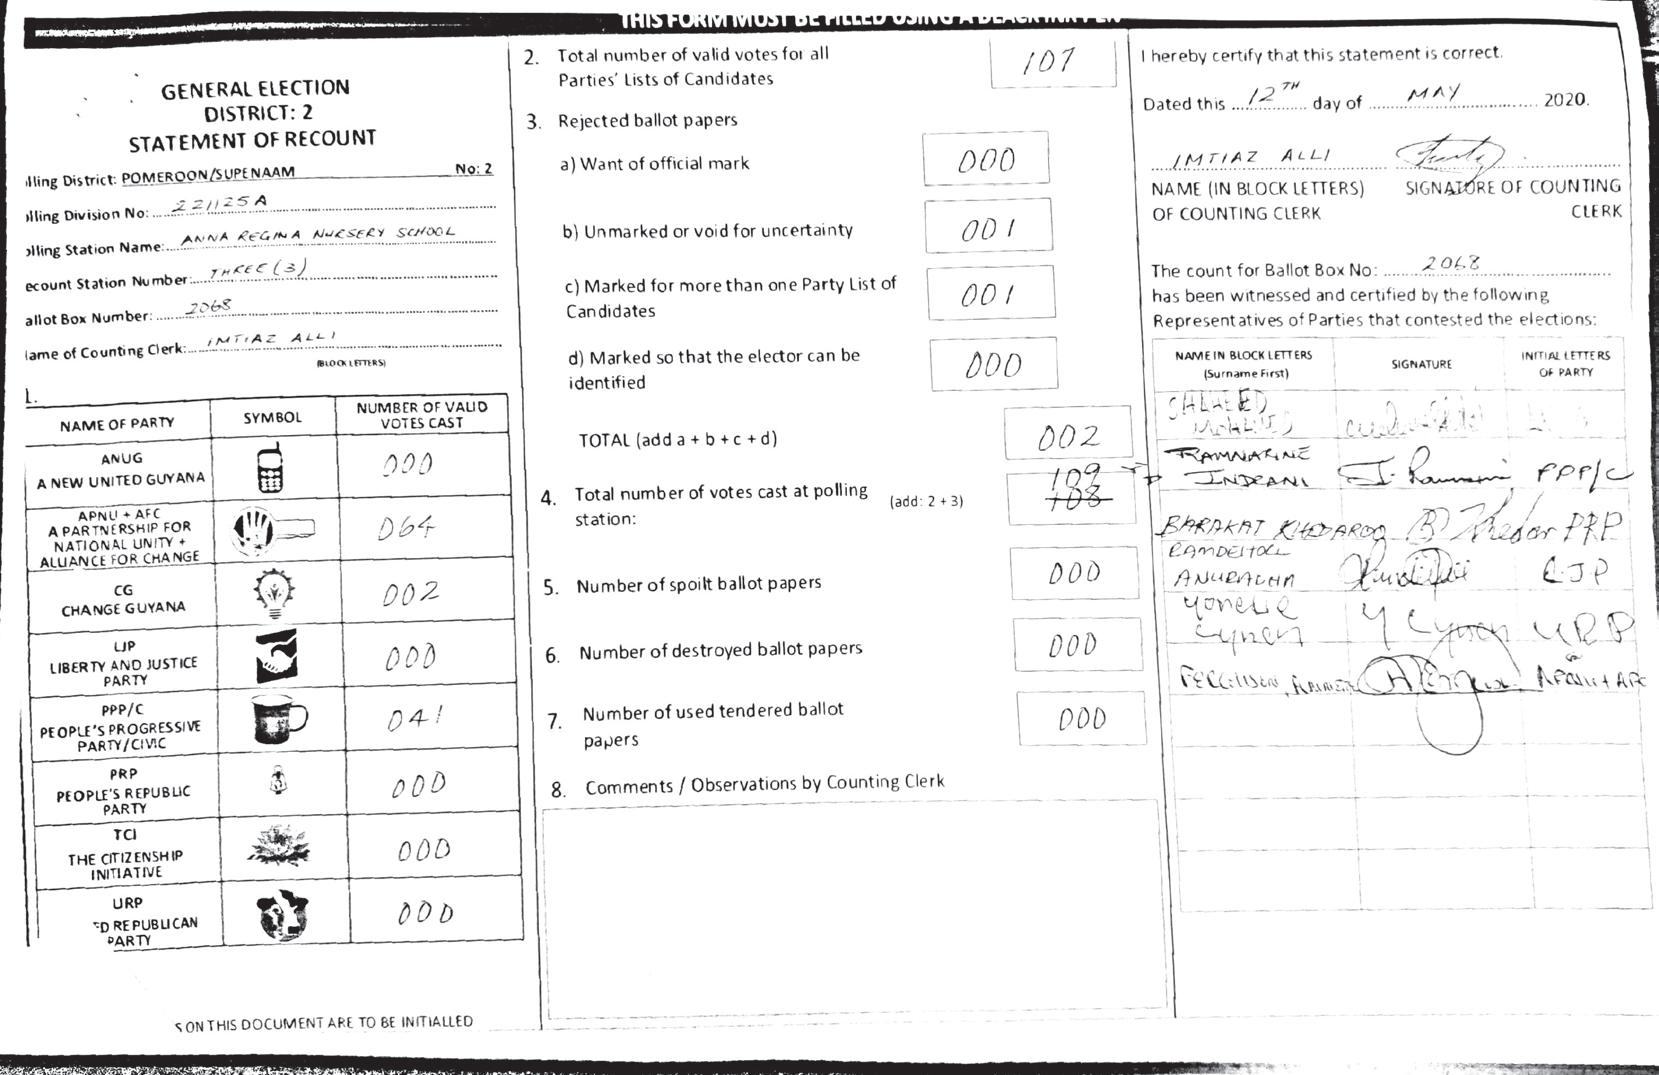 THIS FORM MUST BE FILLED USING A BLACK INK PEN
GENERAL ELECTION
DISTRICT: 2
STATEMENT OF RECOUNT
lling District: POMEROON/SUPENAAM No: 2
lling Division No: 221125A
olling Station Name: ANNA REGINA NURSERY SCHOOL
ecount Station Number: THREE (3)
allot Box Number: 2068
ame of Counting Clerk: IMTIAZ ALLI
(BLOCK LETTERS)
1.
NAME OF PARTY SYMBOL NUMBER OF VALID VOTES CAST
ANUG
A NEW UNITED GUYANA 000
APNU + AFC
A PARTNERSHIP FOR
NATIONAL UNITY +
ALLIANCE FOR CHANGE 064
CG
CHANGE GUYANA 002
LJP
LIBERTY AND JUSTICE
PARTY 000
PPP/C
PEOPLE'S PROGRESSIVE
PARTY/CIVIC 041
PRP
PEOPLE'S REPUBLIC
PARTY 000
TCI
THE CITIZENSHIP
INITIATIVE 000
URP
ED REPUBLICAN
PARTY 000
S ON THIS DOCUMENT ARE TO BE INITIALLED
2. Total number of valid votes for all
Parties' Lists of Candidates 107
3. Rejected ballot papers
a) Want of official mark 000
b) Unmarked or void for uncertainty 001
c) Marked for more than one Party List of
Candidates 001
d) Marked so that the elector can be
identified 000
TOTAL (add a + b + c + d) 002
109
4. Total number of votes cast at polling (add: 2 + 3) 108
station:
5. Number of spoilt ballot papers 000
6. Number of destroyed ballot papers 000
7. Number of used tendered ballot
papers 000
8. Comments / Observations by Counting Clerk
I hereby certify that this statement is correct.
Dated this 12TH day of MAY 2020.
IMTIAZ ALLI
NAME (IN BLOCK LETTERS) SIGNATURE OF COUNTING
OF COUNTING CLERK CLERK
The count for Ballot Box No: 2068
has been witnessed and certified by the following
Representatives of Parties that contested the elections:
NAME IN BLOCK LETTERS
(Surname First) SIGNATURE INITIAL LETTERS
OF PARTY
RAMNARINE
INDRANI PPP/C
BARAKAT KHEDAROO PRP
ANURADHA LJP
URP
APNU + AFC